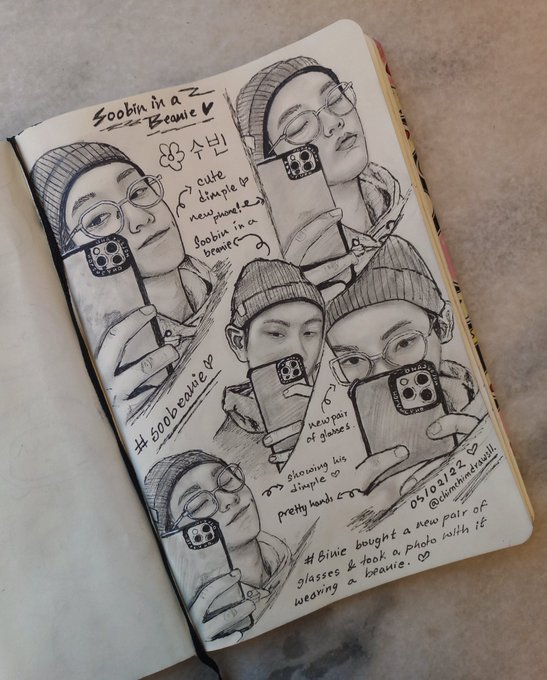 Soobin in a
Beanie
수빈
cute
dimple
new phone!
Soobin in a
beanie
# soobeanie
new pair
of glasses.
showing his
dimple
pretty hands
05/02/22
@chimchimdrawsll
# Binie bought a new pair of
glasses & took a photo with it
wearing a beanie.